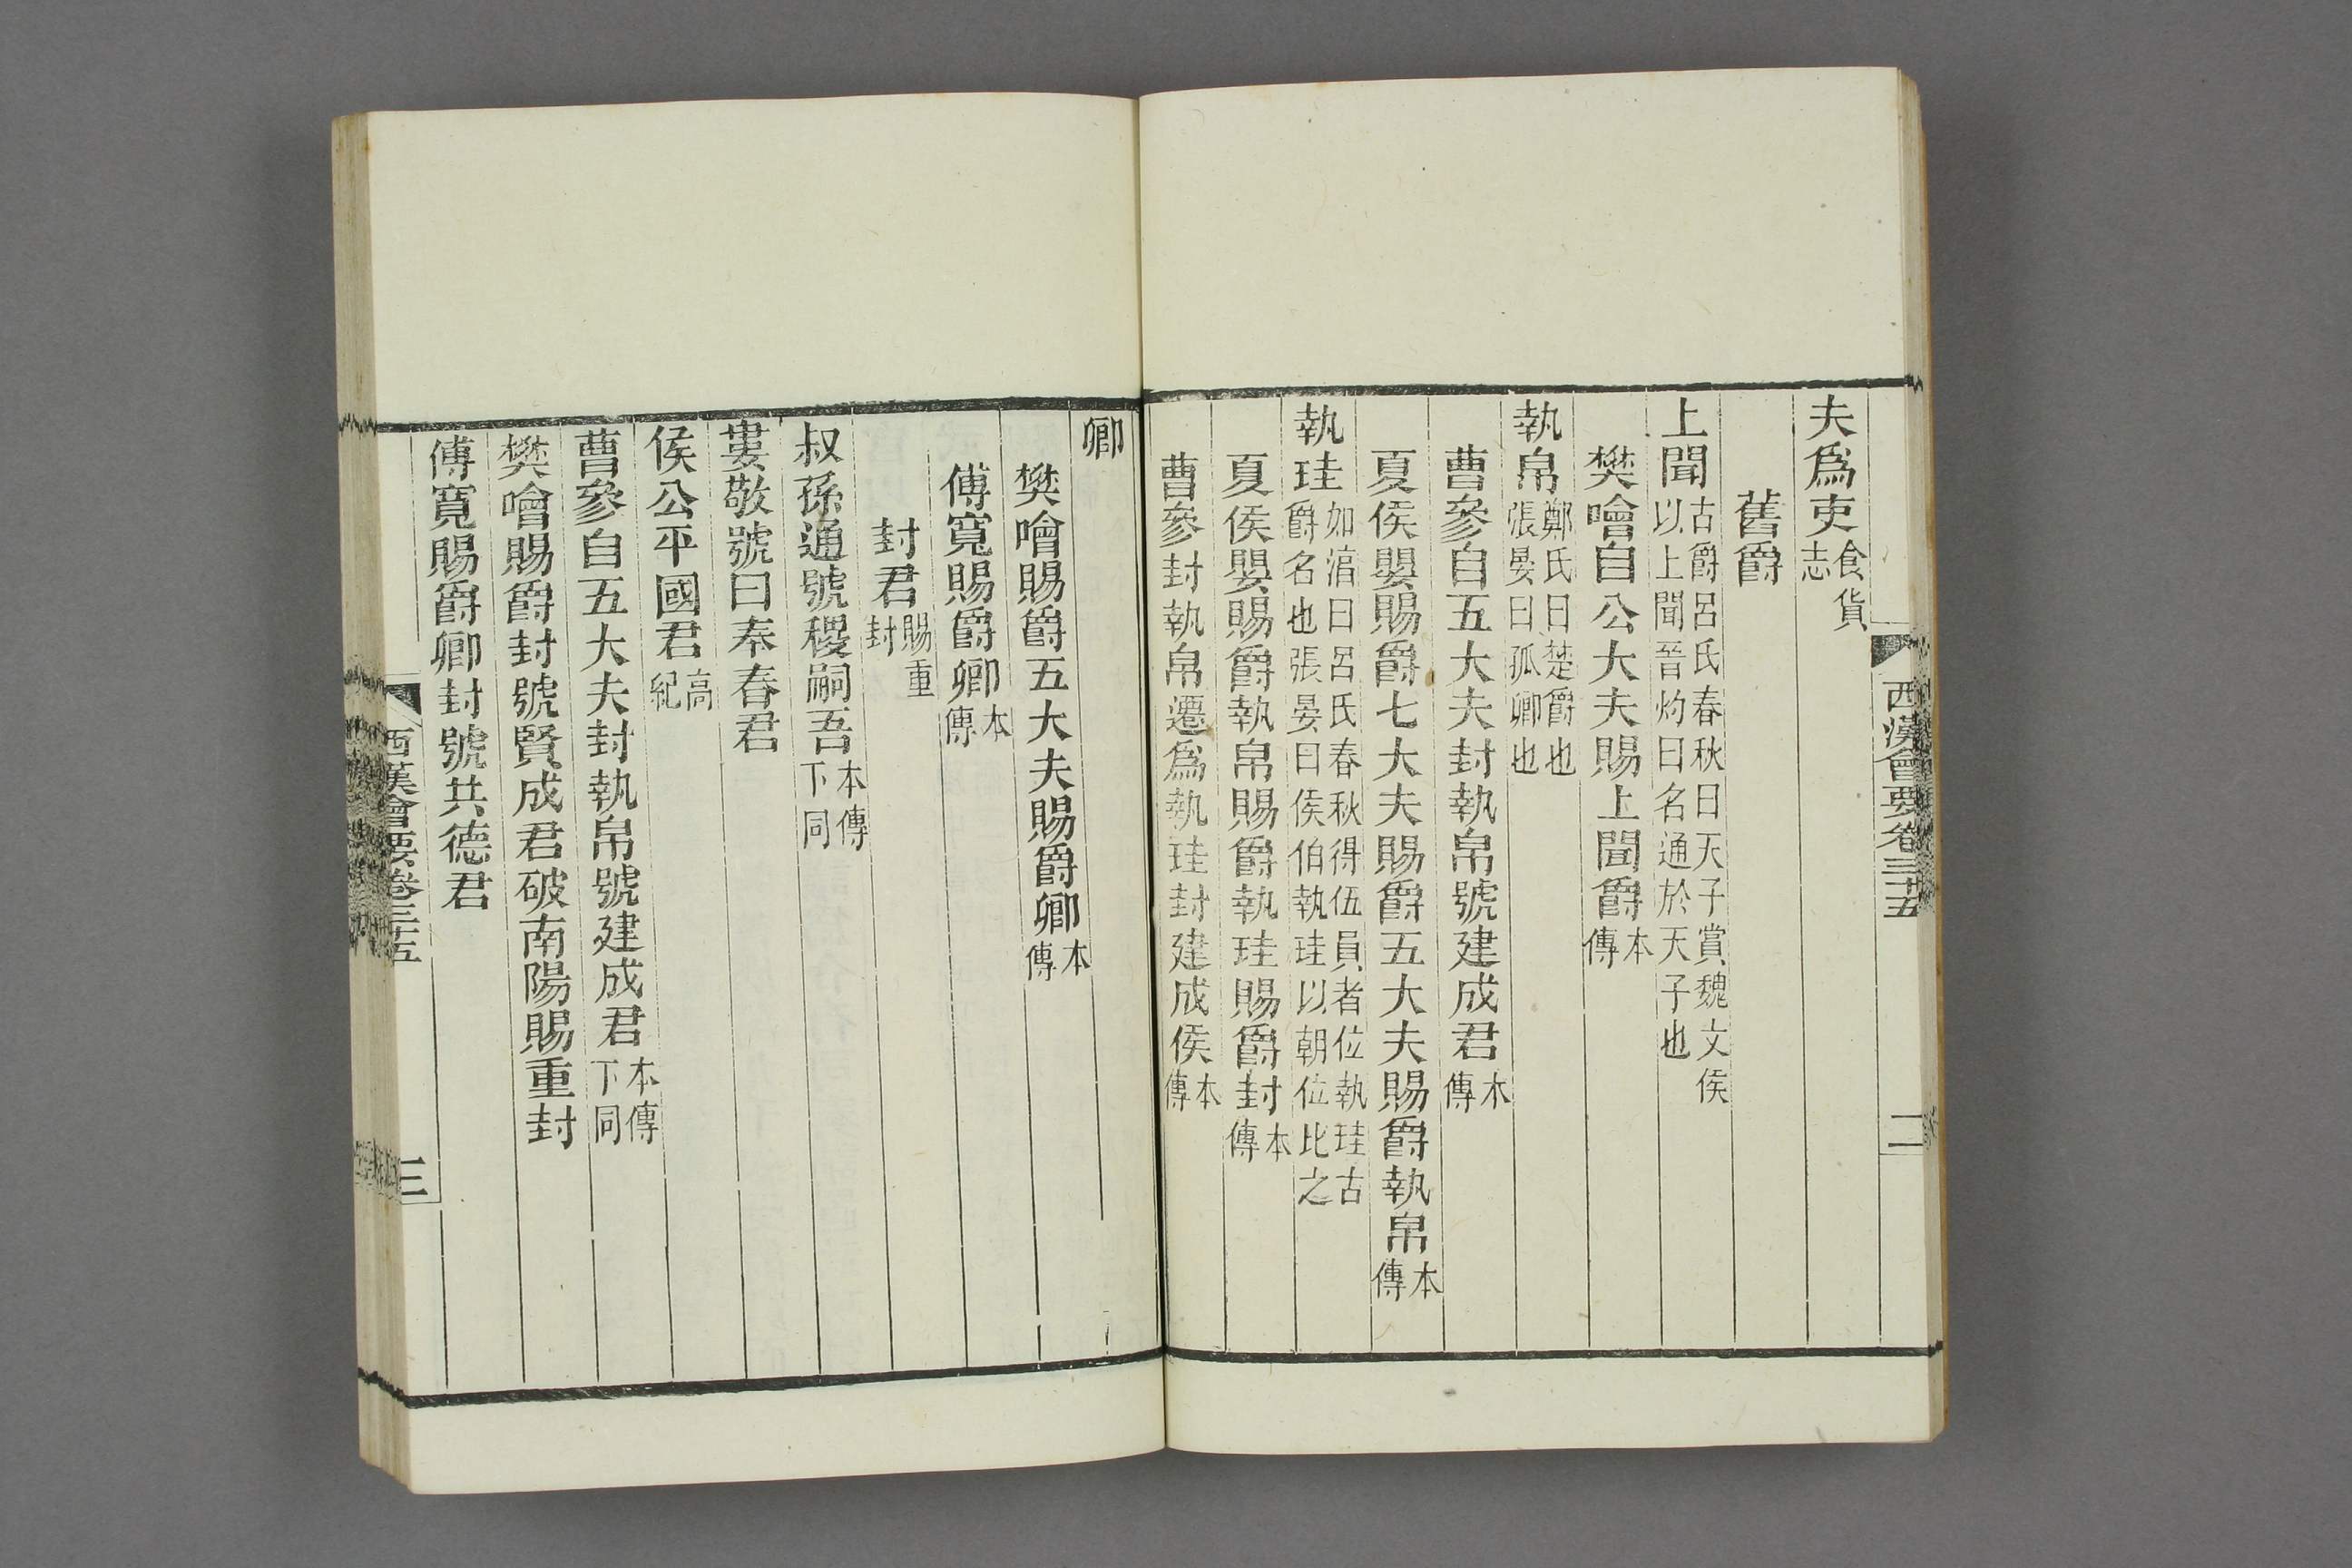 夫爲吏食貨志
舊爵
上聞古爵呂氏春秋曰天子賞魏文侯以上聞晉灼曰名通於天子也
樊噲自公大夫賜上聞爵本傳
執帛鄭氏曰楚爵也張晏曰孤卿也
曹參自五大夫封執帛號建成君本傳
夏侯嬰賜爵七大夫賜爵五大夫賜爵執帛本傳
執珪如淳曰呂氏春秋得伍員者位執珪古爵名也張晏曰侯伯執珪以朝位比之
夏侯嬰賜爵執帛賜爵執珪賜爵封本傳
曹參封執帛遷爲執珪封建成侯本傳
西漢會要卷三十五
二
卿
樊噲賜爵五大夫賜爵卿本傳
傅寬賜爵卿本傳
封君賜重封
叔孫通號稷嗣君本傳下同
婁敬號曰奉春君
侯公平國君高紀
曹參自五大夫封執帛號建成君本傳下同
樊噲賜爵封號賢成君破南陽賜重封
傅寬賜爵卿封號共德君
西漢會要卷三十五
三